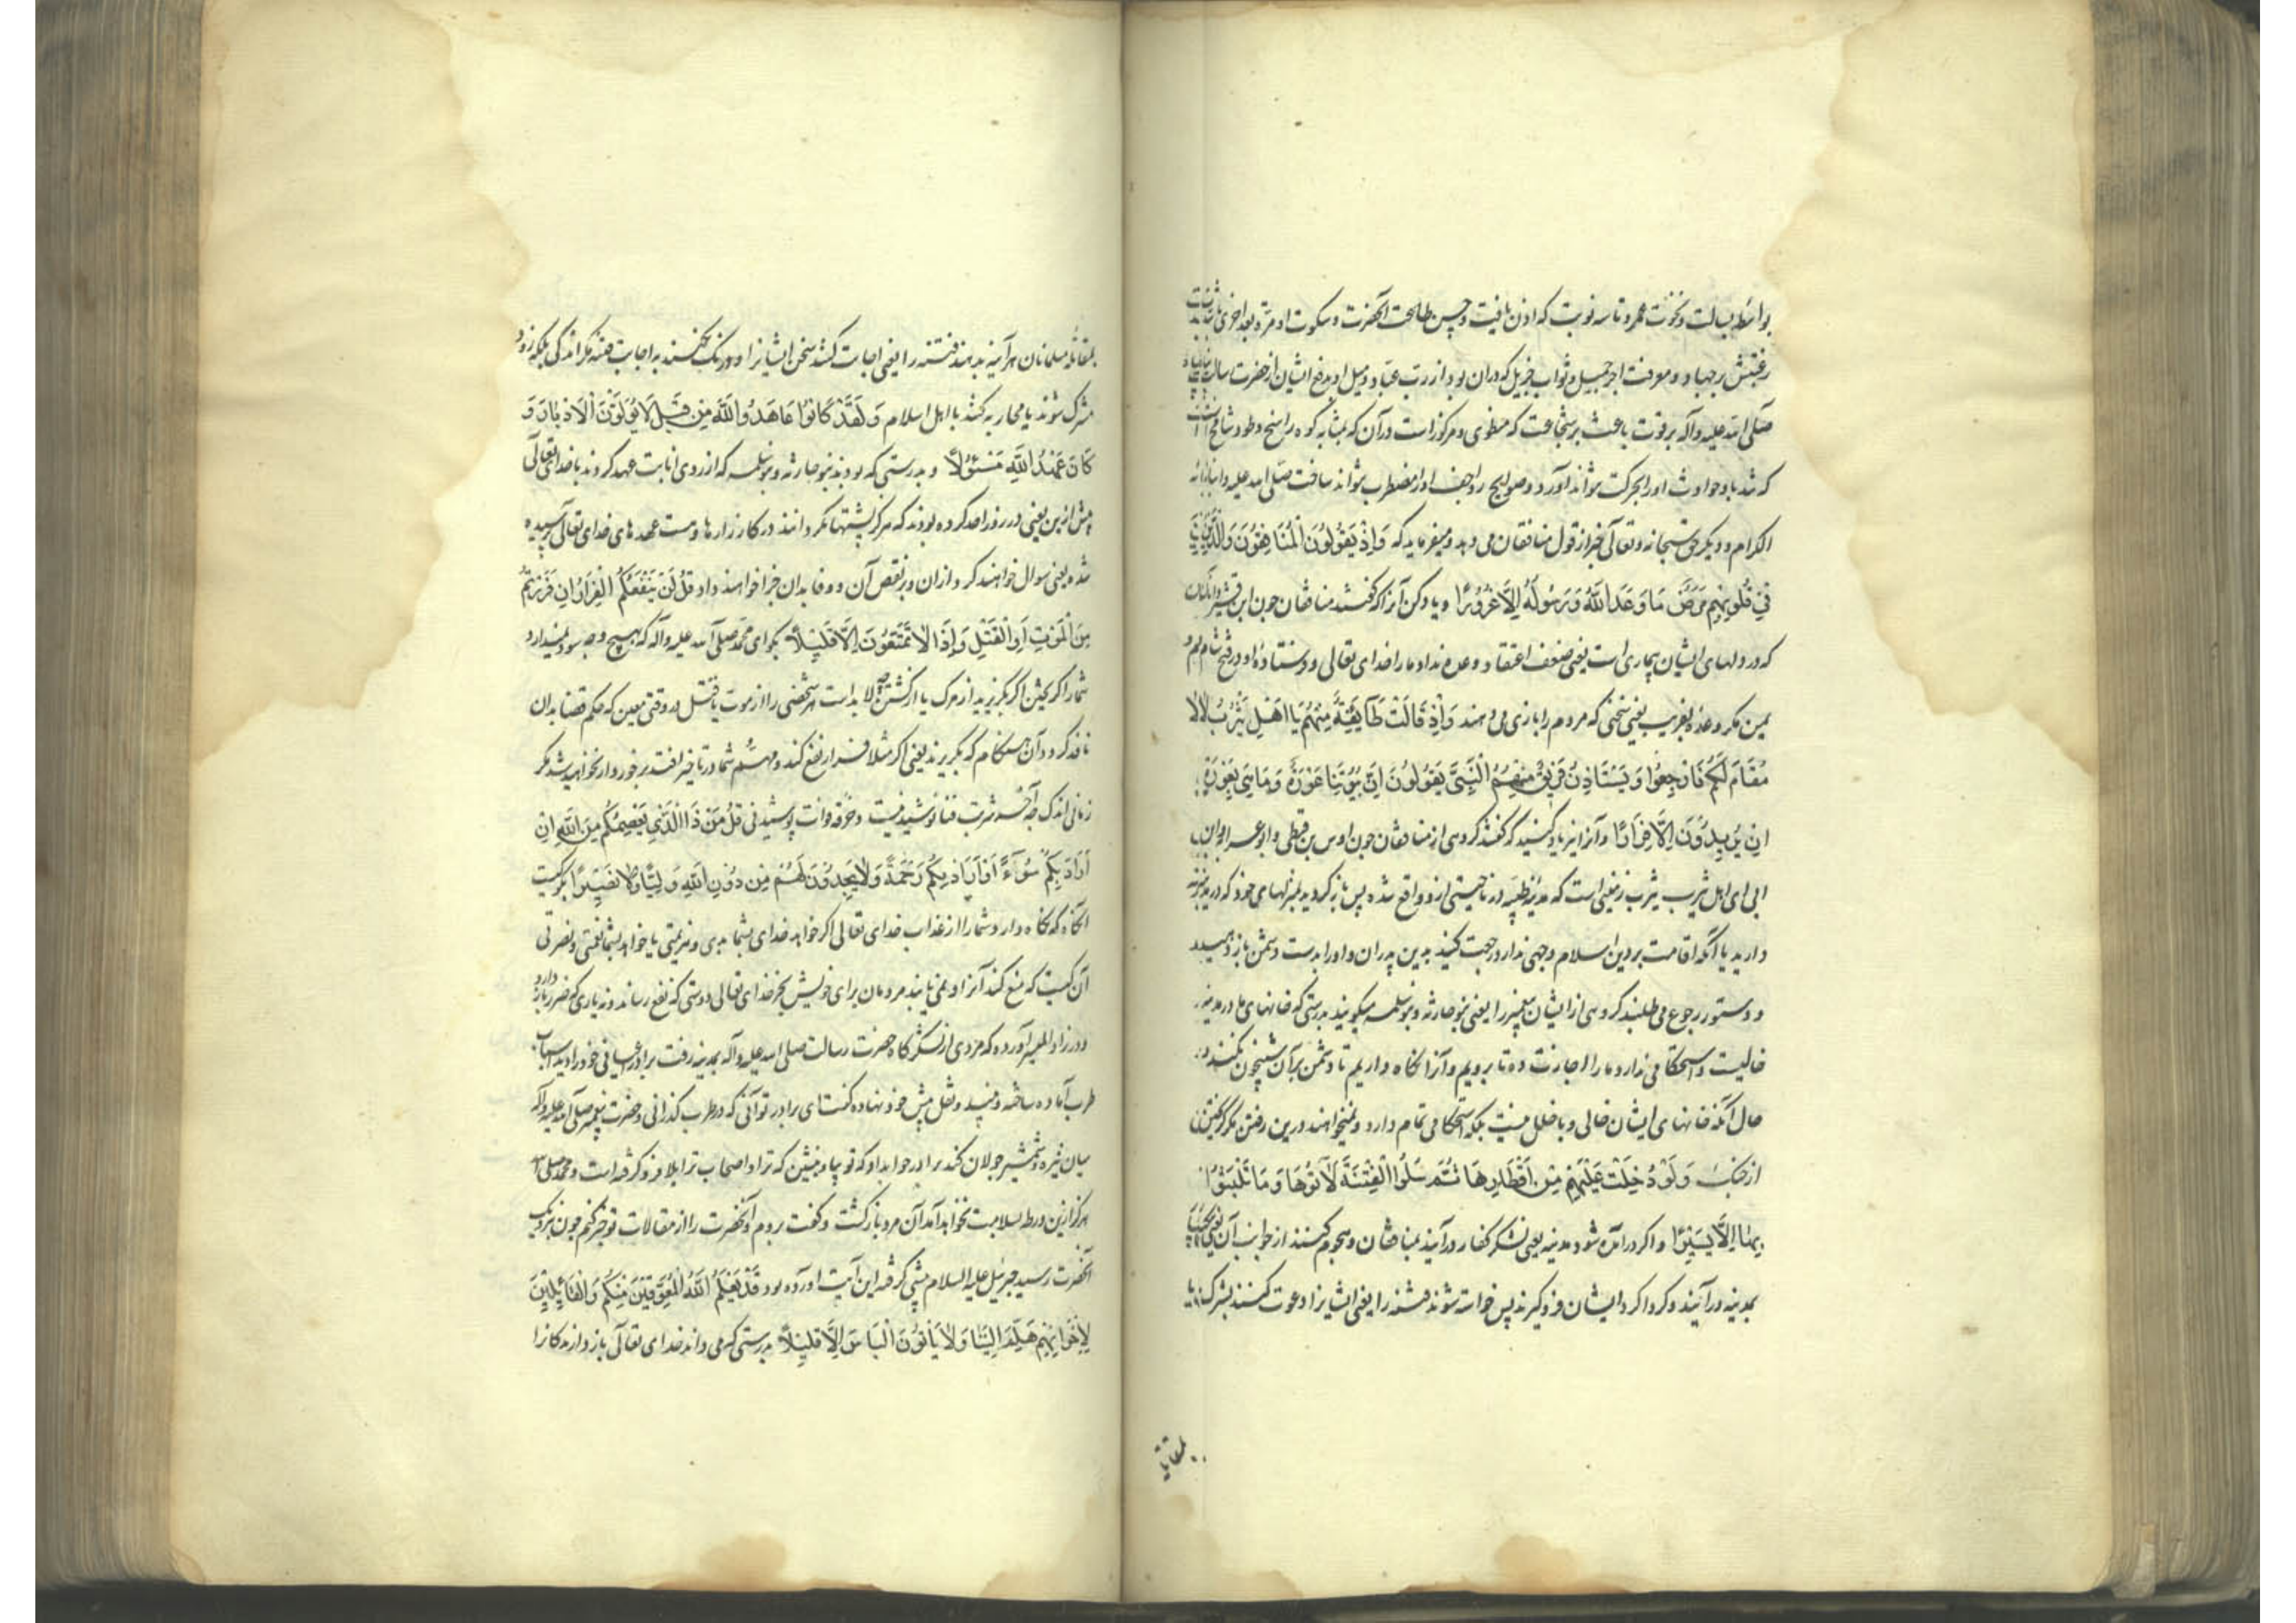 بواسطه بسالت و نخوت عمرو تا سه نوبت که اذن نیافت و حسن مصالحت آنحضرت و سکوت او مرة بعد اخری
رغبتش بر جهاد و معرفت اجر جمیل و ثواب جزیل که در ان بود از رب عباد و میل او بدفع ایشان از حضرت رسالت
صلی الله علیه وآله بر قوت باعث بر شجاعت که منطوی و مرکوز است در آن که بمثابه کوه راسخ و طود شامخ است
که تندباد حوادث او را بحرکت نتواند آورد و صوایح رواجف او را مضطرب نتواند ساخت صلی الله علیه و
الکرام و دیگر حق سبحانه و تعالی خبر از قول منافقان می دهد و میفرماید که وَاِذْ یَقُولُونَ الْمُنَافِقُونَ وَالَّذِینَ
فِی قُلُوبِهِم مَرَضٌ مَا وَعَدَ اللَّهُ وَرَسُولُهُ اِلَّا غُرُورًا و یاد کن آنرا که گفتند منافقان چون ابن قشیر و آنکسان
که در دلهای ایشان بیماری است یعنی ضعف اعتقاد وعده نداد ما را خدای تعالی و فرستادهٔ او در فتح شام و
یمن مکر وعدهٔ بفریب یعنی سخنی که مردم را بازی می دهند وَاِذْ قَالَتْ طَآیِفَةٌ مِنْهُمْ یَا اَهْلَ یَثْرِبَ لَا
مُقَامَ لَکُمْ فَارْجِعُوا وَیَسْتَاْذِنُ فَرِیقٌ مِنْهُمُ النَّبِیَّ یَقُولُونَ اِنَّ بُیُوتَنَا عَوْرَةٌ وَمَا هِیَ بِعَوْرَةٍ
اِنْ یُرِیدُونَ اِلَّا فِرَارًا و آنرا نیز یاد کنید که گفتند گروهی از منافقان چون اوس بن قیظی و ابو عرابه و اخوان
ابی ای اهل یثرب یثرب زمینی است که مدینه طیبه در ناحیتی از و واقع شده پس باز گردید بمنزلهای خود که در مدینه
دارید یا آنکه اقامت بر دین اسلام وجهی ندارد رجعت کنید بدین پدران و او را بدست دشمن باز دهید
و دستور رجوع می طلبند گروهی از ایشان پیغمبر را یعنی بنو حارثه و بنو سلمه میگویند بدرستی که خانهای ما در مدینه
خالیست و استحکامی ندارد ما را اجازت ده تا برویم و آنرا نگاه داریم تا دشمن بر آن شبیخون نکنند
حال آنکه خانهای ایشان خالی و با خلل نیست بلکه استحکامی تمام دارد و نمیخواهند درین رفتن مکر گریختن
از جنک وَلَوْ دُخِلَتْ عَلَیْهِمْ مِنْ اَقْطَارِهَا ثُمَّ سُئِلُوا الْفِتْنَةَ لَآتَوْهَا وَمَا تَلَبَّثُوا
بِهَا اِلَّا یَسِیرًا و اکر در آمده شود مدینه یعنی لشکر کفار در آیند بمنافقان و هجوم کنند از جوانب آن یعنی
بمدینه در آیند و کرداکرد ایشان فرو گیرند پس خواسته شوند فتنه را یعنی ایشانرا دعوت کنند بشرک یا
بمقاتلهٔ
بمقاتلهٔ مسلمانان هر آینه بدهند فتنه را یعنی اجابت کنند سخن ایشانرا و درنک نکنند به اجابت فتنه مکر اندکی بلکه زود
مشرک شوند یا محاربه کنند با اهل اسلام وَلَقَدْ کَانُوا عَاهَدُوا اللَّهَ مِنْ قَبْلُ لَا یُوَلُّونَ الْاَدْبَارَ وَ
کَانَ عَهْدُ اللَّهِ مَسْئُولًا و بدرستی که بودند بنو حارثه و بنو سلمه که از روی انابت عهد کردند با خدای تعالی
پیش ازین یعنی در روز احد کرده بودند که هرکز پشتها نکردانند در کار زارها و هست عهدهای خدای تعالی پرسیده
شده یعنی سوال خواهند کرد از ان و بر نقض آن و وفا بدان جزا خواهند داد قُلْ لَنْ یَنْفَعَکُمُ الْفِرَارُ اِنْ فَرَرْتُمْ
مِنَ الْمَوْتِ اَوِ الْقَتْلِ وَاِذًا لَا تُمَتَّعُونَ اِلَّا قَلِیلًا بگو ای محمد صلی الله علیه وآله که هیچ وجه سود ندارد
شما را گریختن اکر بگریزید از مرک یا از کشتن چه لا بد است هر شخصی را از موت یا قتل در وقتی معین که حکم قضا بدان
نافذ کردد آن هنکام که بگریزید یعنی اکر مثلا فرار نفع کند و مهم شما در تاخیر افتد برخوردار نخواهید شد مکر
زمانی اندک چه آخر شربت فنا نوشیدنیست و خرقه وفات پوشیدنی قُلْ مَنْ ذَا الَّذِی یَعْصِمُکُمْ مِنَ اللَّهِ اِنْ
اَرَادَ بِکُمْ سُوٓءًا اَوْ اَرَادَ بِکُمْ رَحْمَةً وَلَا یَجِدُونَ لَهُمْ مِنْ دُونِ اللَّهِ وَلِیًّا وَلَا نَصِیرًا بگو کیست
آنکه نگاه دارد شما را از عذاب خدای تعالی اکر خواهد خدای بشما بدی و هزیمتی یا خواهد بشما نعمتی و نصرتی
آن کیست که منع کند آنرا و نمی یابند مردمان برای خویش بجز خدای تعالی دوستی که نفع رساند و نه یاری که ضرر باز دارد
و در زاد المسیر آورده که مردی از لشکر گاه حضرت رسالت صلی الله علیه وآله بمدینه رفت برادر اعیانی خود را دید اسباب
طرب آماده ساخته و نبید و نقل پیش خود نهاده گفت ای برادر تو آنی که در طرب گذرانی و حضرت پیغمبر صلی الله علیه وآله
میان نیزه و شمشیر جولان کند برادر جواب داد که تو بیا و بنشین که ترا و اصحاب ترا بلا فرو گرفته است و محمد صلی الله
هرکز ازین ورطه بسلامت نخواهد آمد آن مرد باز گشت و گفت بروم و آنحضرت را از مقالات تو خبر کنم چون نزدیک
آنحضرت رسید جبرئیل علیه السلام پیشی گرفته این آیت آورده بود قَدْ یَعْلَمُ اللَّهُ الْمُعَوِّقِینَ مِنْکُمْ وَالْقَآئِلِینَ
لِاِخْوَانِهِمْ هَلُمَّ اِلَیْنَا وَلَا یَاْتُونَ الْبَاْسَ اِلَّا قَلِیلًا بدرستی که می داند خدای تعالی باز دارندکانرا